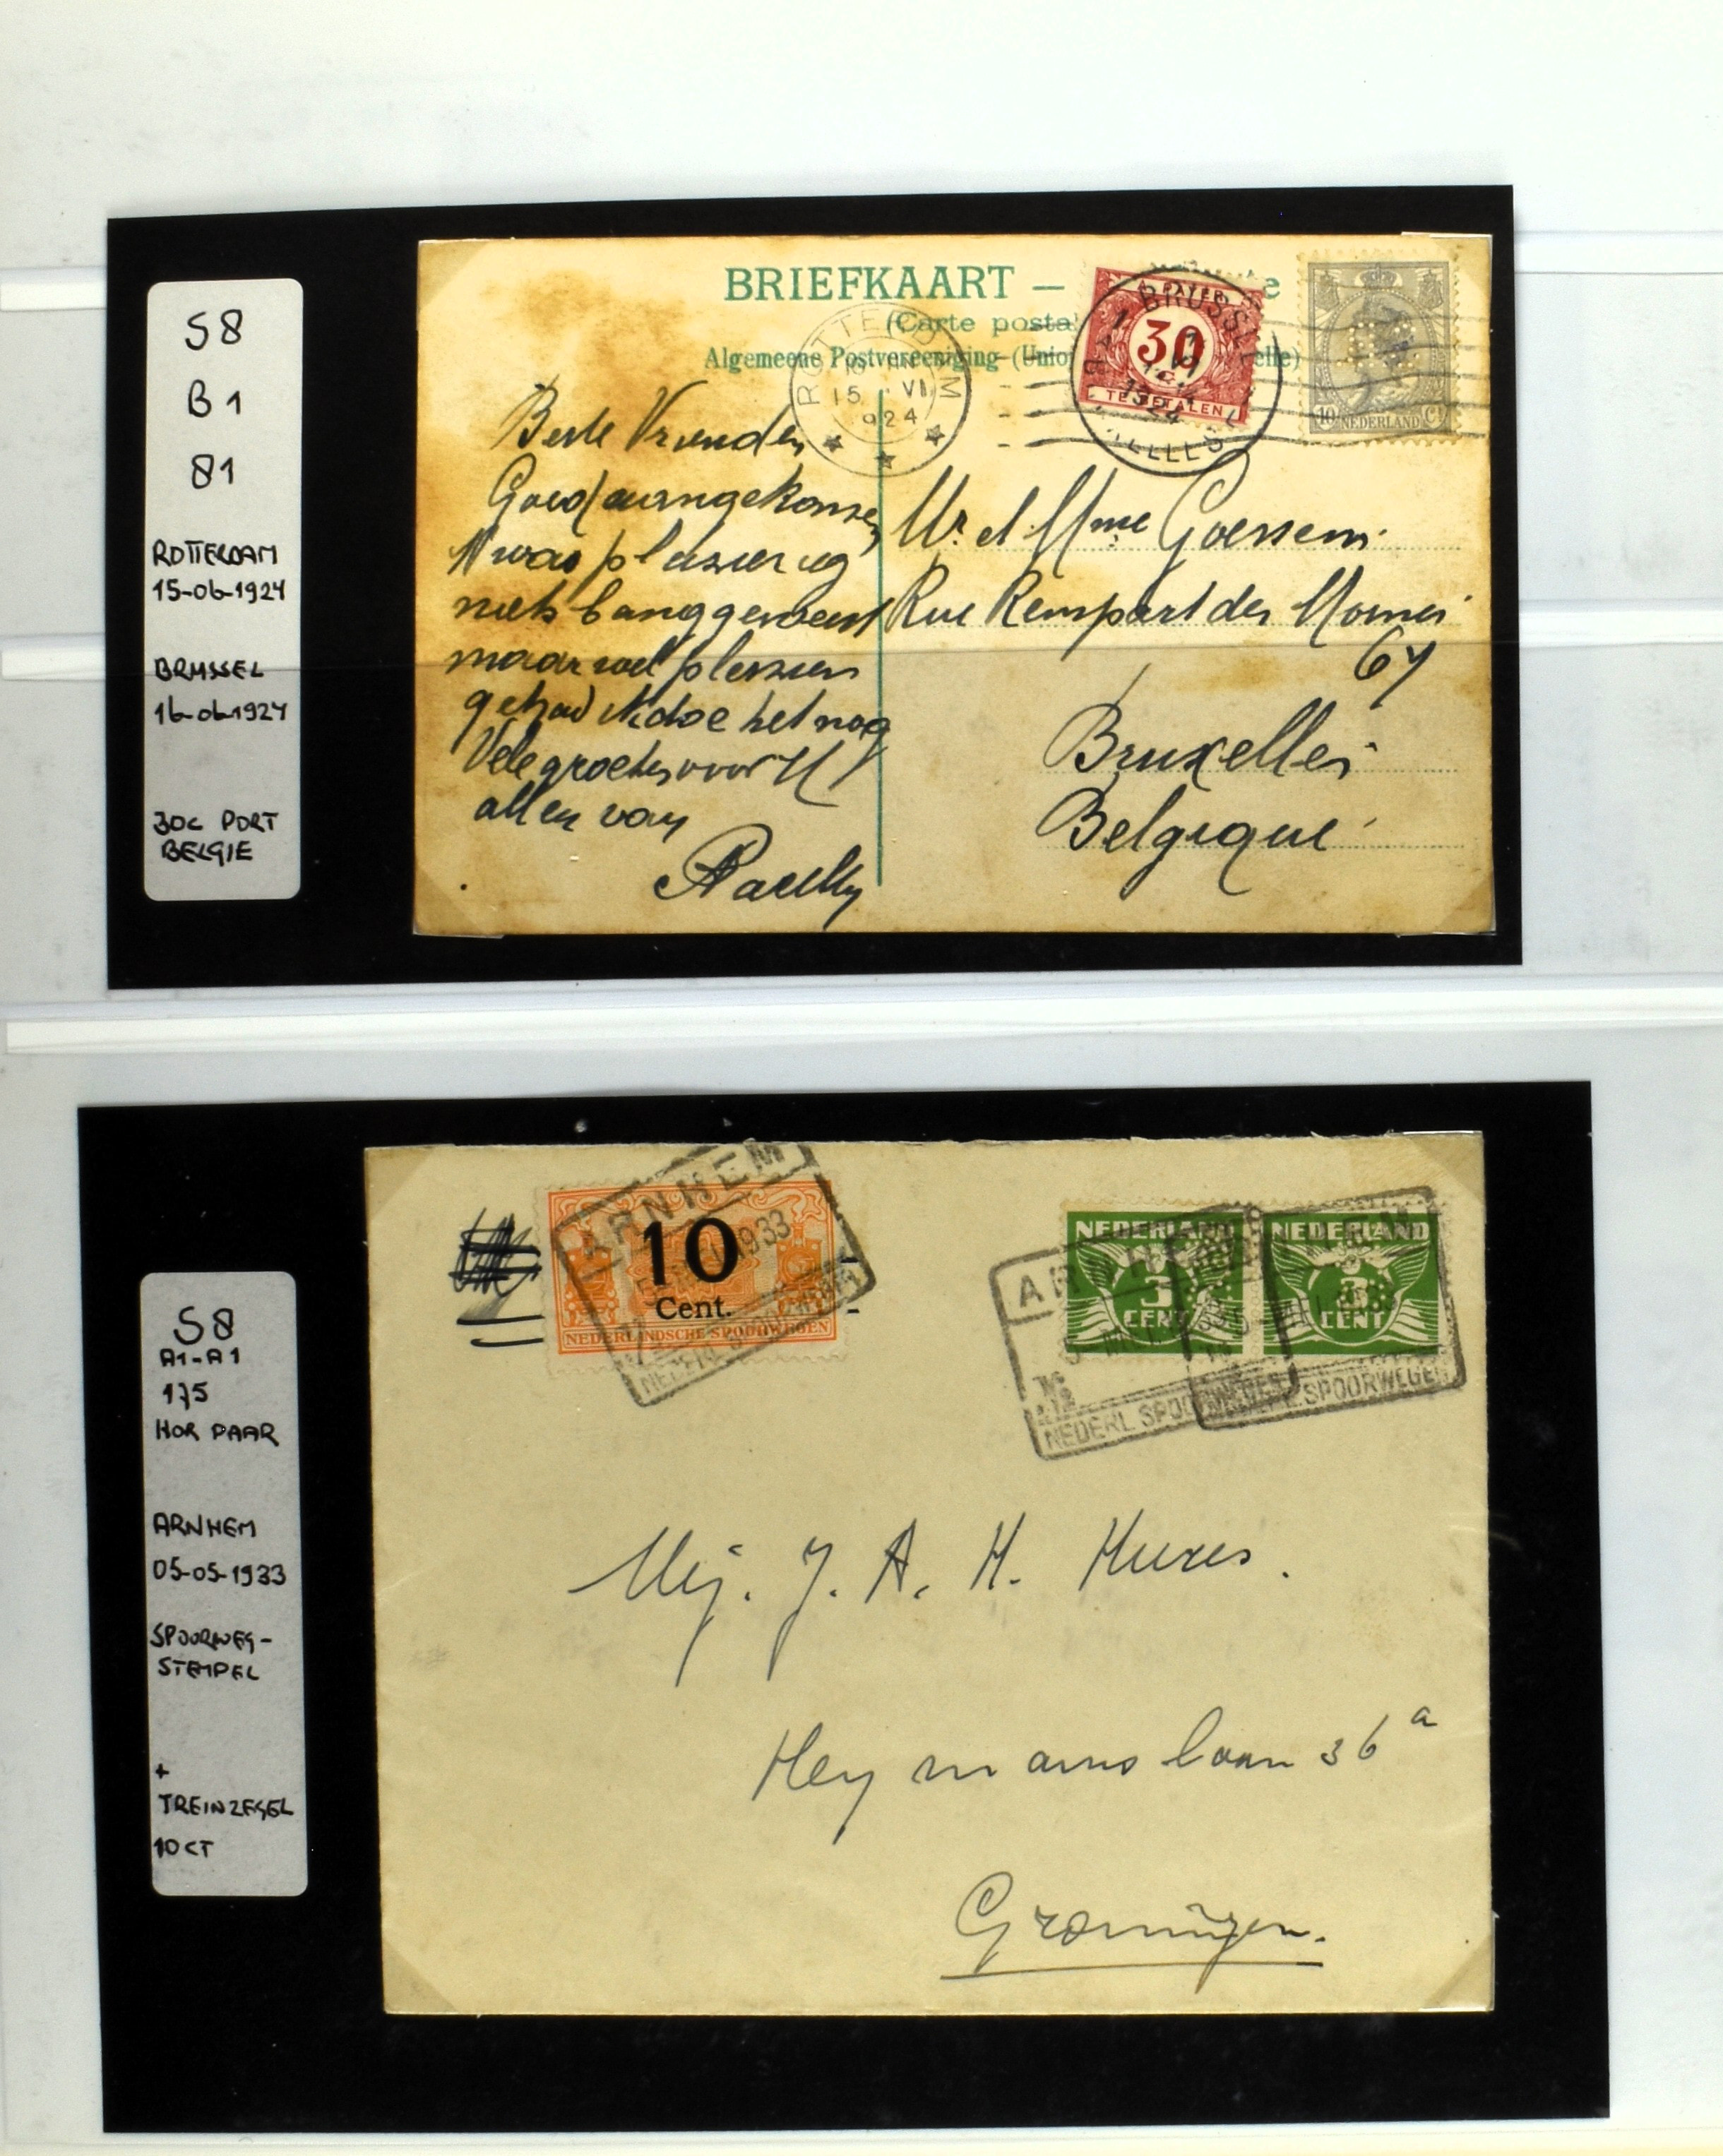 S8
B1
81
ROTTERDAM
15-06-1924
BRUSSEL
16-06-1924
30C PORT
BELGIE
BRIEFKAART —
(Carte posta
Algemeene Postvereeniging (Unio
elle)
ROTTERDAM
15 VI
1924
BRUSSEL
1924
30
TE BETALEN
10 NEDERLAND Ct
Beste Vrienden
Goed aangekomen
'K was plezierig
niets bang geweest
maar wel plezier
gehad 'K doe het nog
Vele groeten voor U
allen van
Mr. et Mme Goessens
Rue Rempart des Moines
67
Bruxelles
Belgique
S8
A1-A1
175
HOR PAAR
ARNHEM
05-05-1933
SPOORWEG-
STEMPEL
+
TREINZEGEL
10 CT
ARNHEM
10
Cent.
NEDERLANDSCHE SPOORWEGEN
1933
NEDERLAND
3
CENT
NEDERLAND
3
CENT
NEDERL. SPOORWEGEN
Mej. J. A. H. Hures.
Heymanslaan 36a
Groningen.